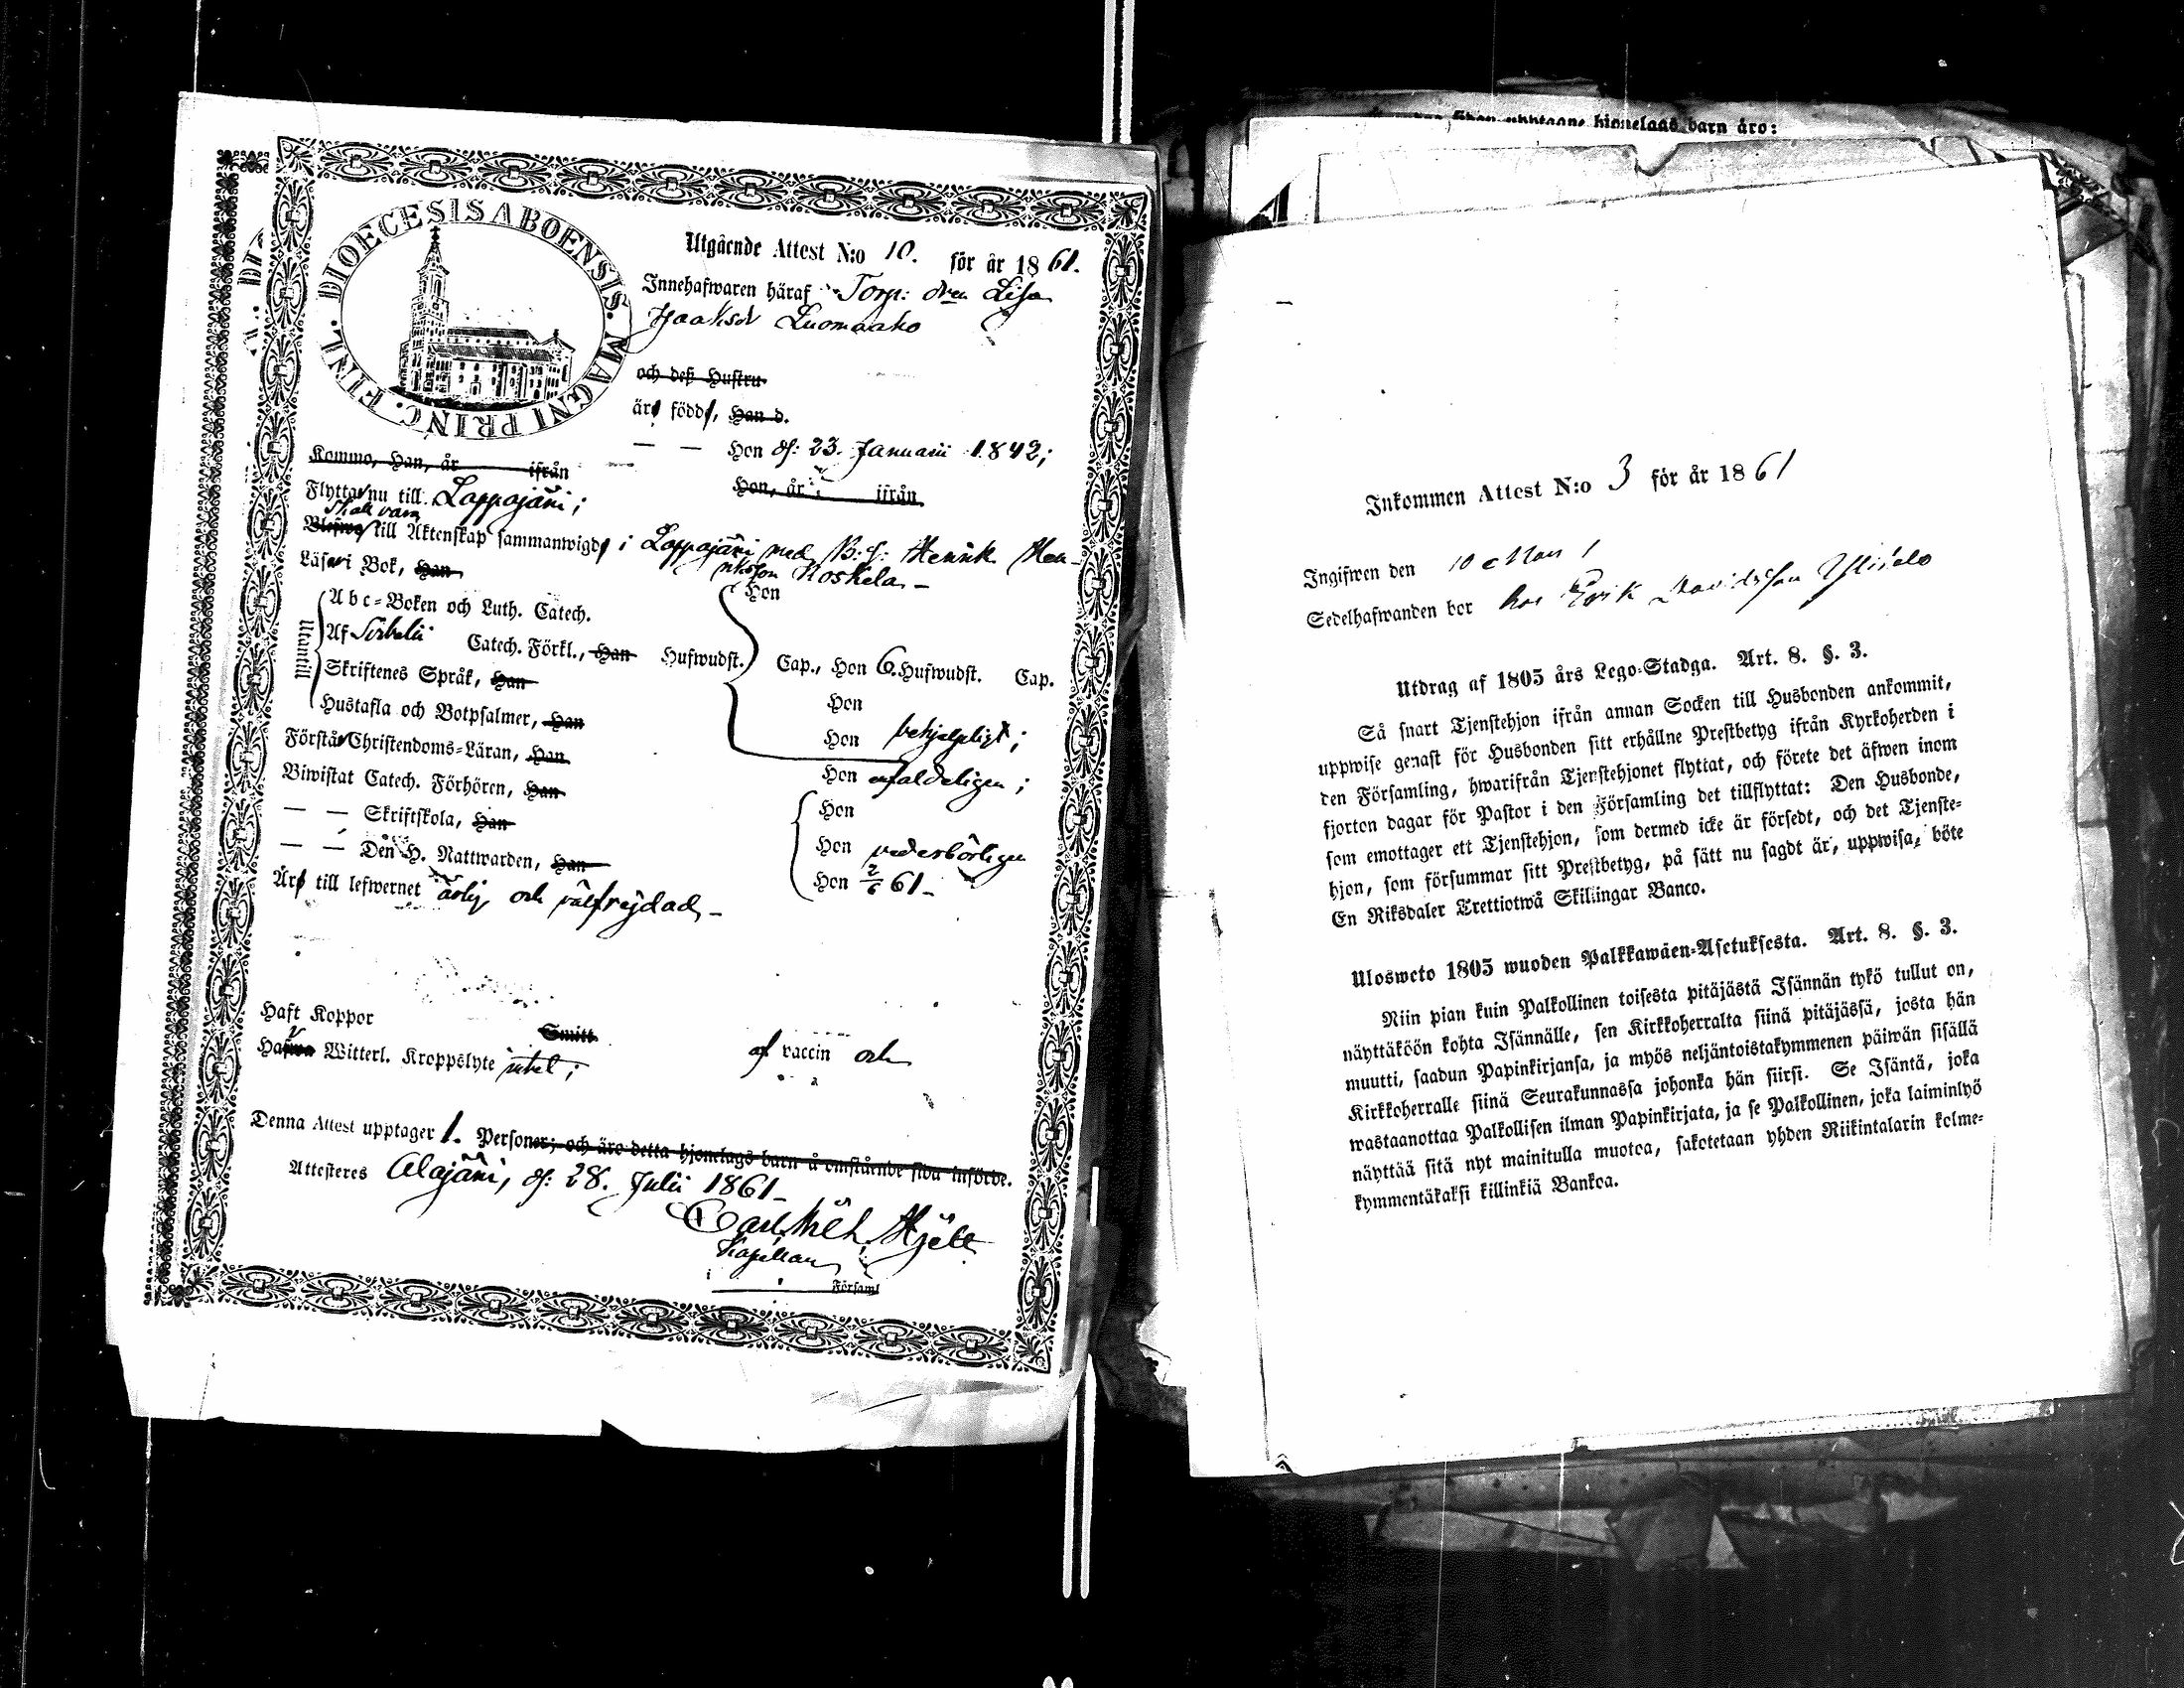 DIOECESIS ABOENSIS. MAGNI PRINC. FINL.
Utgående Attest N:o 10. för år 1861.
Innehafwaren häraf Torp: dren Lisa
Isaaksdr Luomaaho
och deß Hustru
äro född, Han d.
— — Hon d: 23 Januarii 1842;
Kommo, Han, år ifrån
Hon, år ifrån
Flyttar nu till Lappajärvi;
Skall vara
Blefwo till Äktenskap sammanwigde i Lappajärvi med B: s: Henrik Hen-
riksson Koskela –
Läser i Bok, Han
Hon
Utantill
Abc-Boken och Luth. Catech.
Af Svebelii Catech. Förkl., Han Hufwudst. Cap., Hon 6. Hufwudst. Cap.
Skriftenes Språk, Han
Hon
Hustafla och Botpsalmer, Han
Hon behjelpligt;
Förstår Christendoms-Läran, Han
Hon enfaldeligen;
Biwistat Catech. Förhören, Han
Hon
— — Skriftskola, Han
Hon vederbörligen
— — Den H. Nattwarden, Han
Hon 2/6 61 –
Äro till lefwernet ärlig och välfrejdad –
Haft Koppor Smitt af vaccin och
Hafwa Witterl. Kroppslyte utet;
Denna Attest upptager 1. Personer; och äro detta hjonelags barn å omstående sida införde.
Attesteras Alajärvi, d: 28. Julii 1861 –
Carl Wilh. Hjelt
Kapellan
Församl
hjonelags barn äro:
Inkommen Attest N:o 3 för år 1861
Ingifwen den 10
Sedelhafwanden bor hos Erik Davidsson
Utdrag af 1805 års Lego-Stadga. Art. 8. §. 3.
Så snart Tjenstehjon ifrån annan Socken till Husbonden ankommit,
uppwise genast för Husbonden sitt erhållne Prestbetyg ifrån Kyrkoherden i
den Församling, hwarifrån Tjenstehjonet flyttat, och förete det äfwen inom
fjorton dagar för Pastor i den Församling det tillflyttat: Den Husbonde,
som emottager ett Tjenstehjon, som dermed icke är försedt, och det Tjenste-
hjon, som försummar sitt Prestbetyg, på sätt nu sagdt är, uppwisa, böte
En Riksdaler Trettiotwå Skillingar Banco.
Ulosweto 1805 wuoden Palkkawäen-Asetuksesta. Art. 8. §. 3.
Niin pian kuin Palkollinen toisesta pitäjästä Isännän tykö tullut on,
näyttäköön kohta Isännälle, sen Kirkkoherralta siinä pitäjässä, josta hän
muutti, saadun Papinkirjansa, ja myös neljäntoistakymmenen päiwän sisällä
Kirkkoherralle siinä Seurakunnassa johonka hän siirsi. Se Isäntä, joka
wastaanottaa Palkollisen ilman Papinkirjata, ja se Palkollinen, joka laiminlyö
näyttää sitä nyt mainitulla muotoa, sakotetaan yhden Riikintalarin kolme-
kymmentäkaksi killinkiä Bankoa.